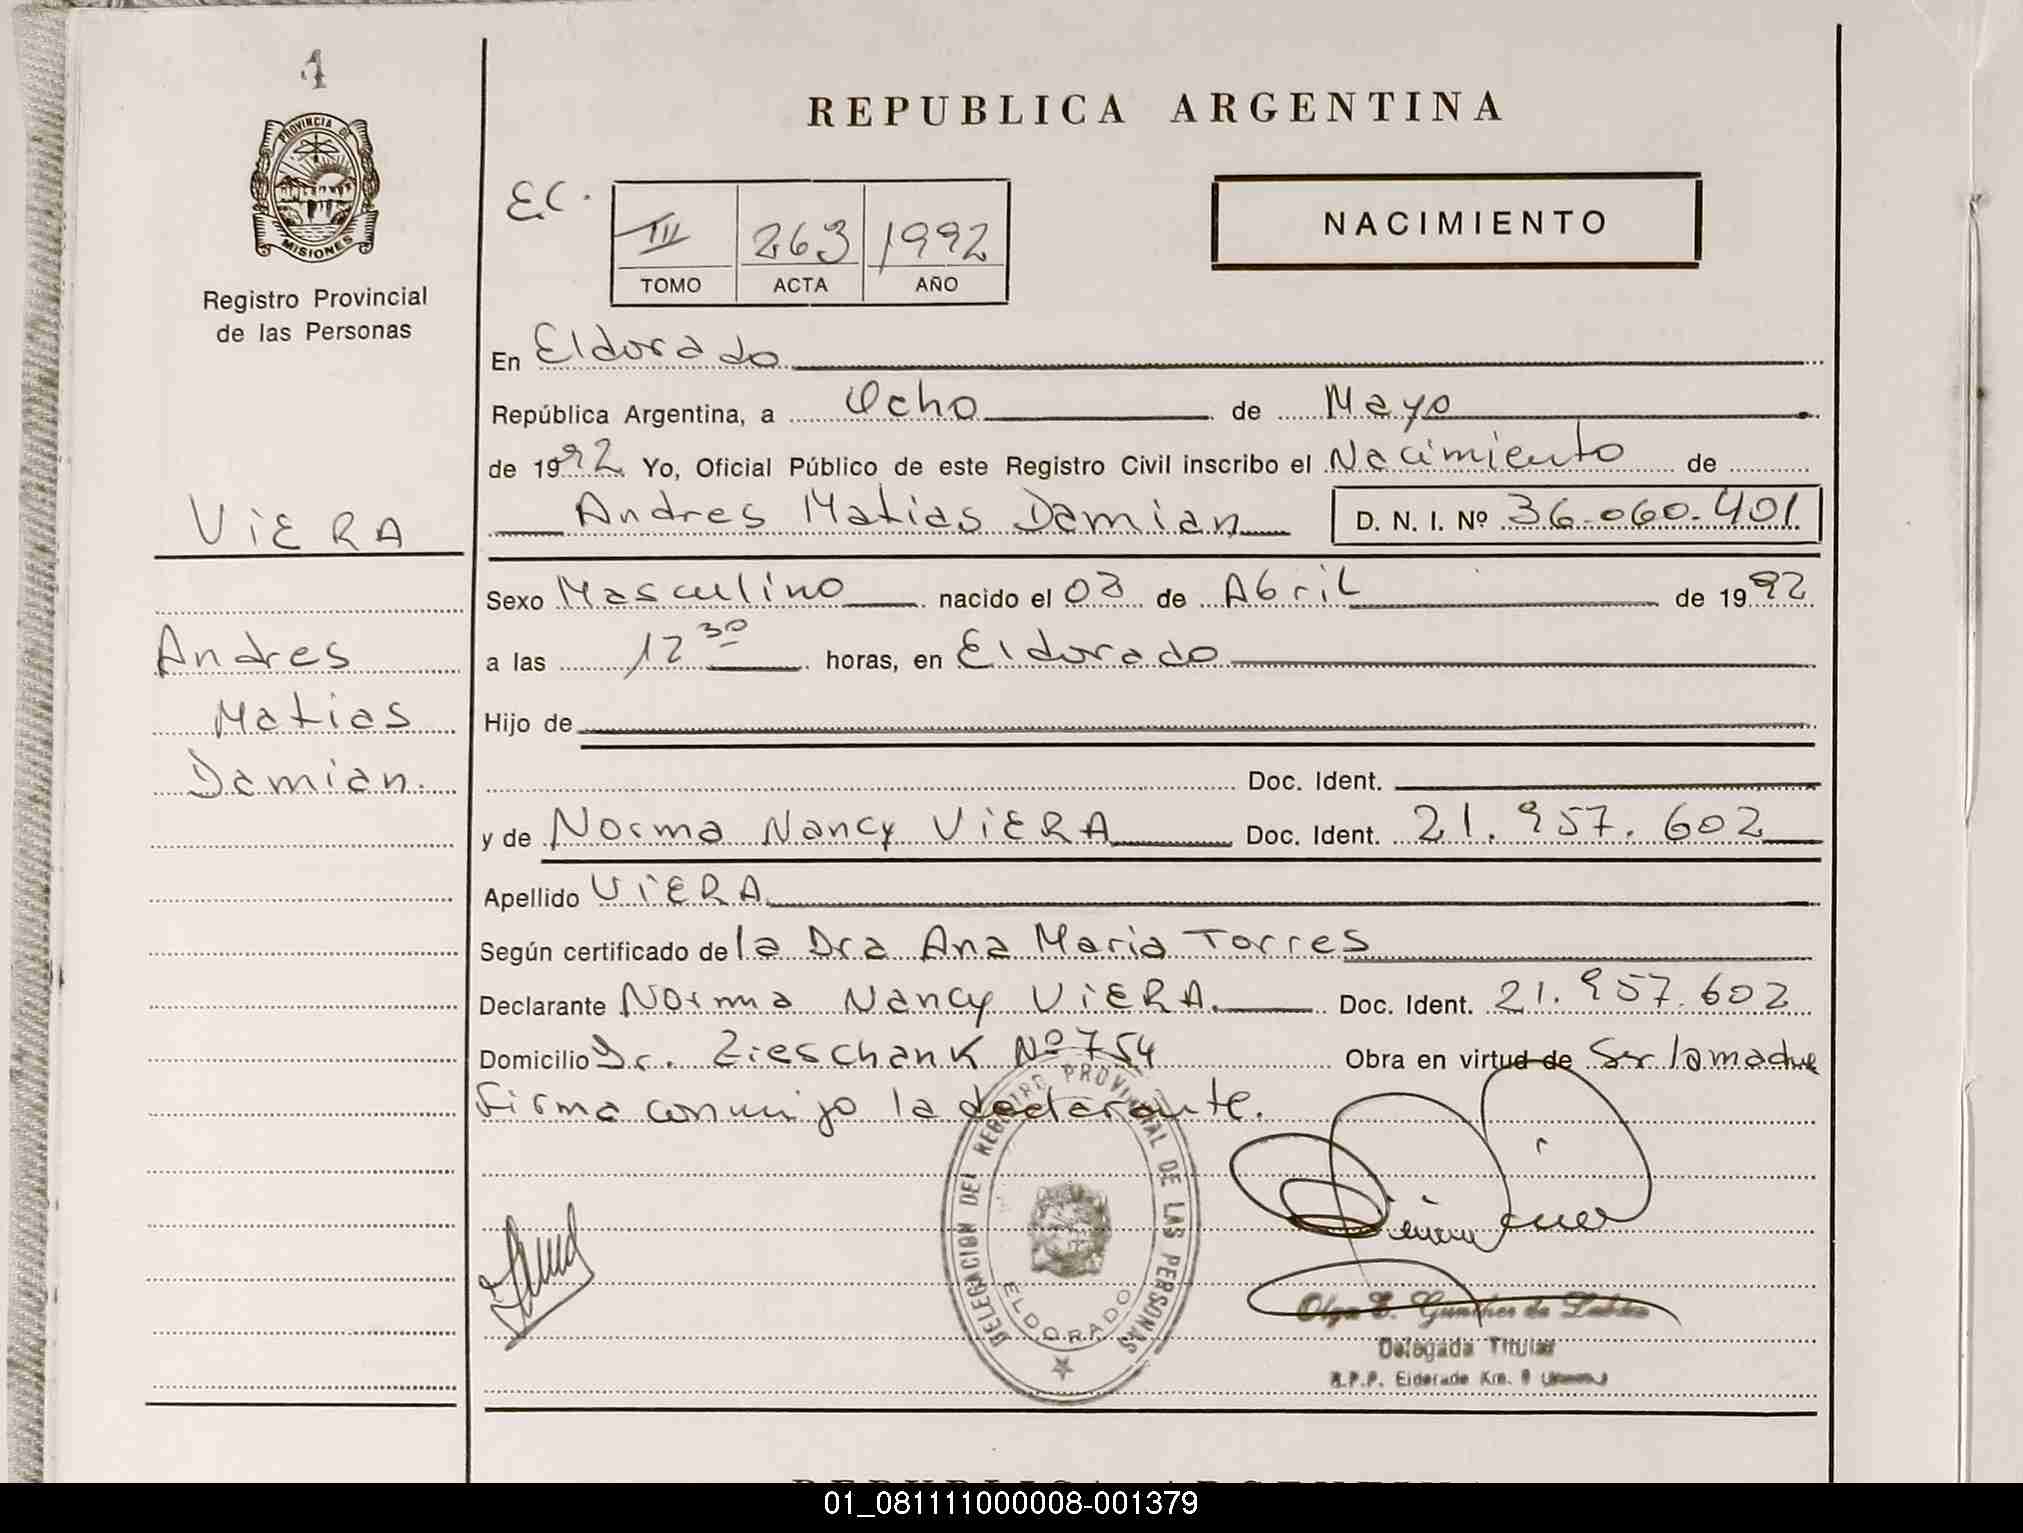 1
PROVINCIA DE
MISIONES
Registro Provincial
de las Personas
VIERA
Andres
Matias
Damian.
REPUBLICA ARGENTINA
EC.
III 263 1992
TOMO ACTA AÑO
NACIMIENTO
En Eldorado
República Argentina, a Ocho de Mayo
de 1992 Yo, Oficial Público de este Registro Civil inscribo el Nacimiento de
Andres Matias Damian D. N. I. Nº 36.060.401
Sexo Masculino nacido el 08 de Abril de 1992
a las 12 30 horas, en Eldorado
Hijo de
Doc. Ident.
y de Norma Nancy VIERA Doc. Ident. 21.957.602
Apellido VIERA
Según certificado de la Dra Ana Maria Torres
Declarante Norma Nancy VIERA. Doc. Ident. 21.957.602
Domicilio Zieschank Nº 754 Obra en virtud de Ser la madre
Firma conmigo la declarante.
DELEGACION DEL REGISTRO PROVINCIAL DE LAS PERSONAS
ELDORADO
Olga E. de
Delegada Titular
R.P.P. Eldorado Km. 9
REPUBLICA ARGENTINA
01_081111000008-001379